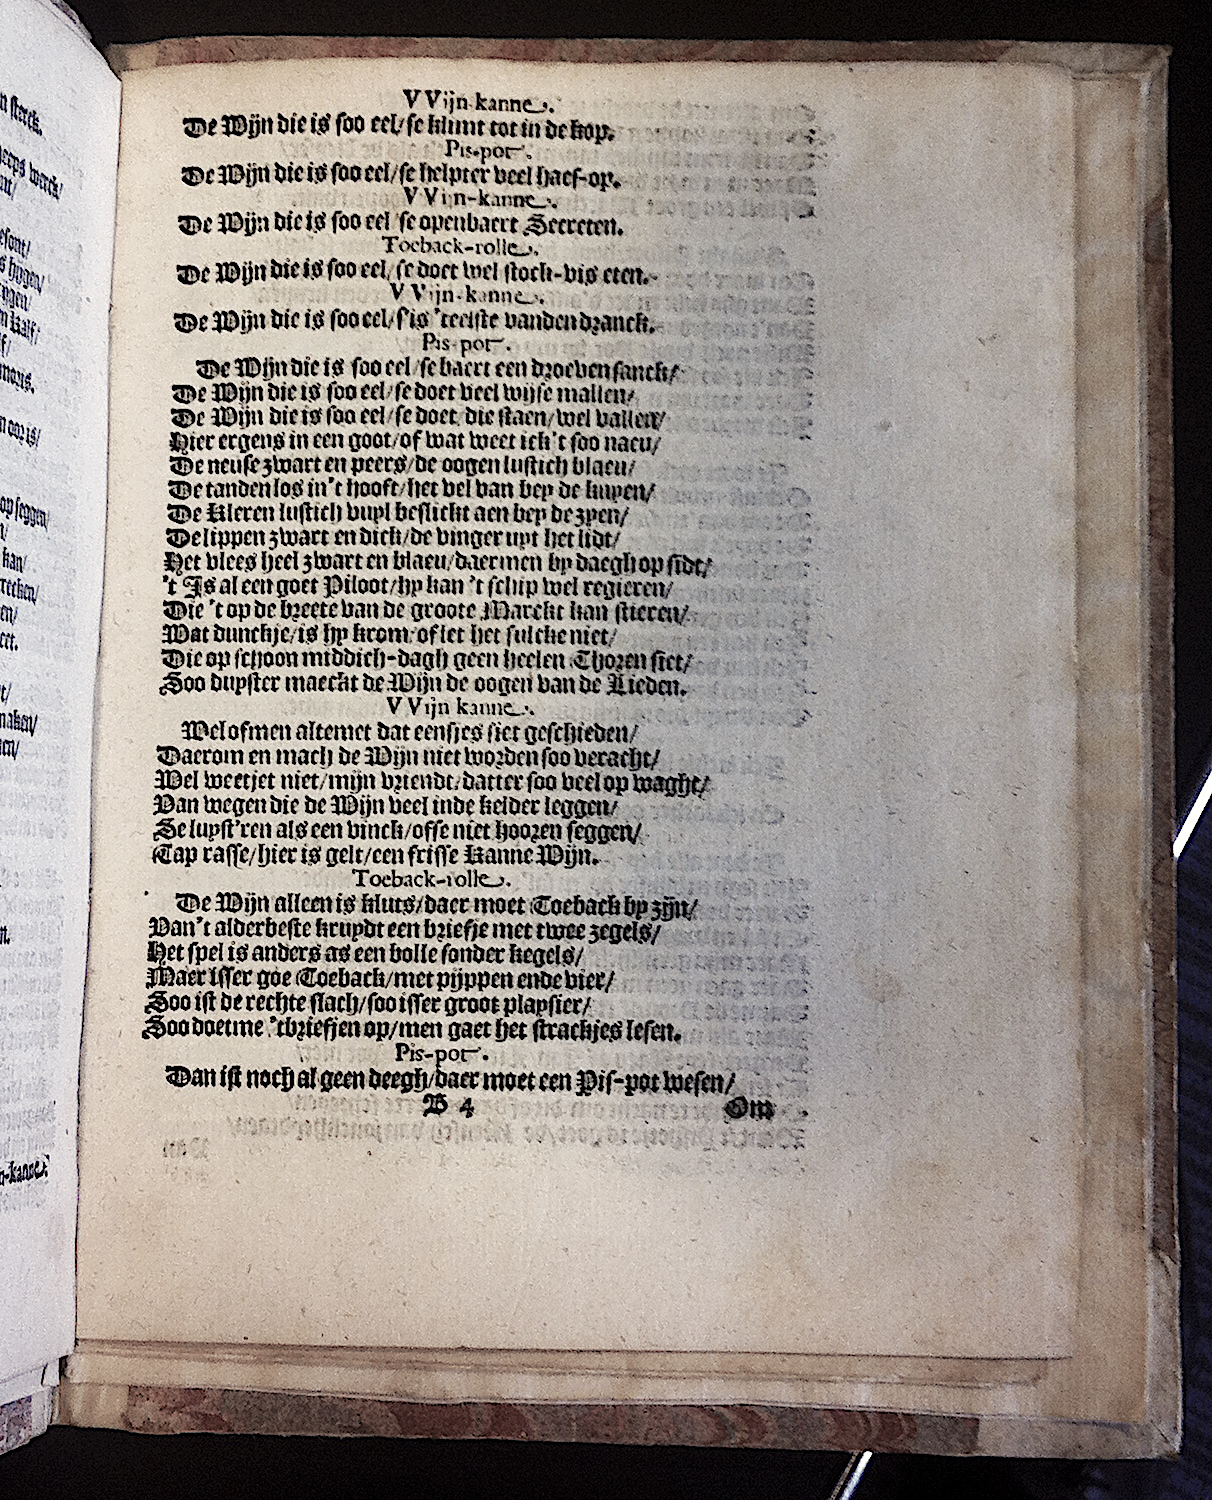 VVijn-kanne.
De Wijn die is soo eel/se klimt tot in de kop.
Pis-pot.
De Wijn die is soo eel/se helpter veel haes-op.
VVijn-kanne.
De Wijn die is soo eel/se openbaert Secreten.
Toeback-rolle.
De Wijn die is soo eel/se doet wel stock-vis eten.
VVijn-kanne.
De Wijn die is soo eel/s'is 'teelste vanden dranck.
Pis-pot.
De Wijn die is soo eel/se baert een droeven sanck/
De Wijn die is soo eel/se doet veel wijse mallen/
De Wijn die is soo eel/se doet/die staen/wel vallen/
Hier ergens in een goot/of wat weet ick't soo naeu/
De neuse zwart en peers/de oogen lustich blaeu/
De tanden los in't hooft/het vel van bey de kuyen/
De Kleren lustich vuyl beslickt aen bey de zyen/
De lippen zwart en dick/de vinger uyt het lidt/
Het vlees heel zwart en blaeu/daermen by daegh op sidt/
't Is al een goet Piloot/hy kan 't schip wel regieren/
Die 't op de breete van de groote Marckt kan stieren/
Wat dunckje/is hy krom/of let het sulcke niet/
Die op schoon middich-dagh geen heelen Thoren siet/
Soo duyster maeckt de Wijn de oogen van de Lieden.
VVijn kanne.
Wel ofmen altemet dat eensjes siet geschieden/
Daerom en mach de Wijn niet worden soo veracht/
Wel weetjet niet/mijn vriendt/datter soo veel op waght/
Van wegen die de Wijn veel inde kelder leggen/
Se luyst'ren als een vinck/ofse niet hooren seggen/
Tap rasse/hier is gelt/een frisse Kanne Wijn.
Toeback-rolle.
De Wijn alleen is kluts/daer moet Toeback by zijn/
Van't alderbeste kruydt een briefje met twee zegels/
Het spel is anders as een bolle sonder kegels/
Maer isser goe Toeback/met pijppen ende vier/
Soo ist de rechte slach/soo isser groot playsier/
Soo doetme 'tbriefjen op/men gaet het strackjes lesen.
Pis-pot.
Dan ist noch al geen deegh/daer moet een Pis-pot wesen/
B 4 Om